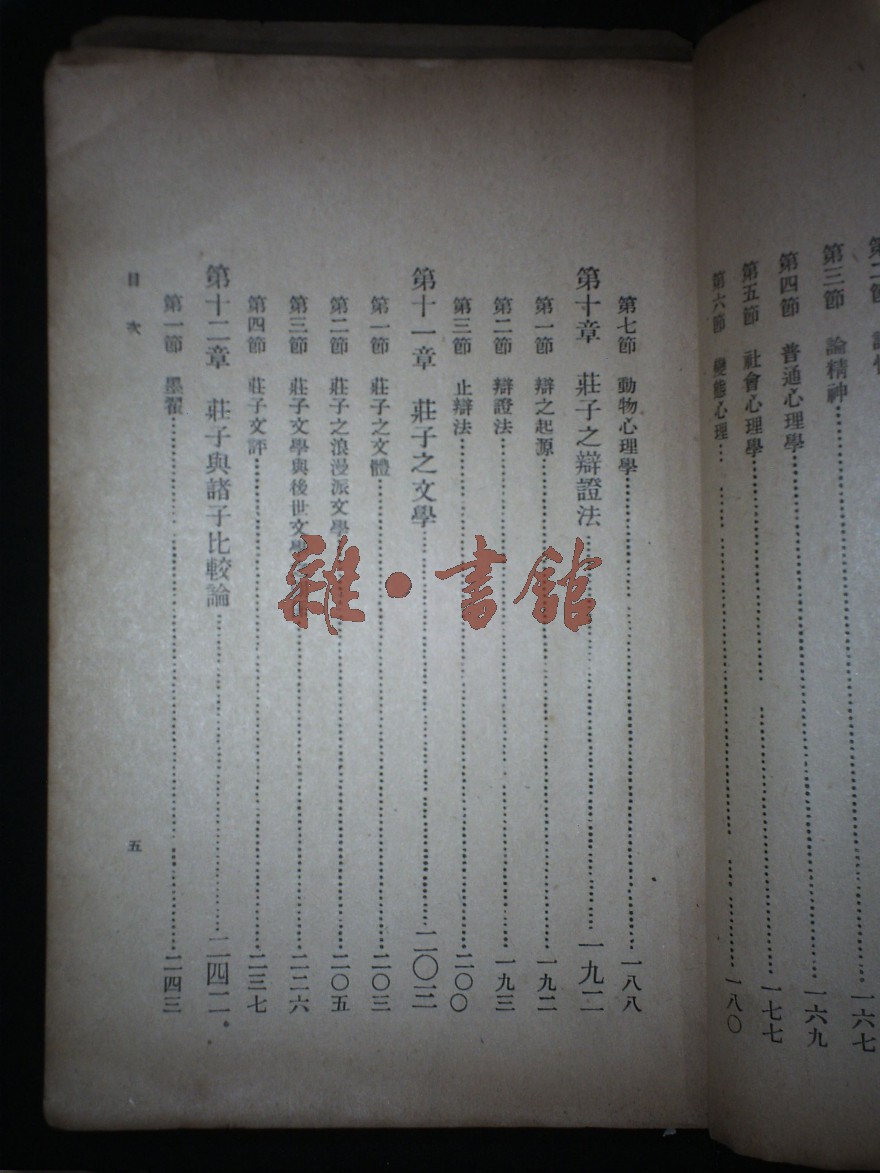 第三節　論精神……一六七
第四節　普通心理學……一六九
第五節　社會心理學……一七七
第六節　變態心理……一八〇
第七節　動物心理學……一八八
第十章　莊子之辯證法……一九二
第一節　辯之起源……一九二
第二節　辯證法……一九三
第三節　止辯法……二〇〇
第十一章　莊子之文學……二〇三
第一節　莊子之文體……二〇三
第二節　莊子之浪漫派文學……二〇五
第三節　莊子文學與後世文學……二二六
第四節　莊子文評……二三七
第十二章　莊子與諸子比較論……二四二
第一節　墨翟……二四三
目次
五
雜·書館